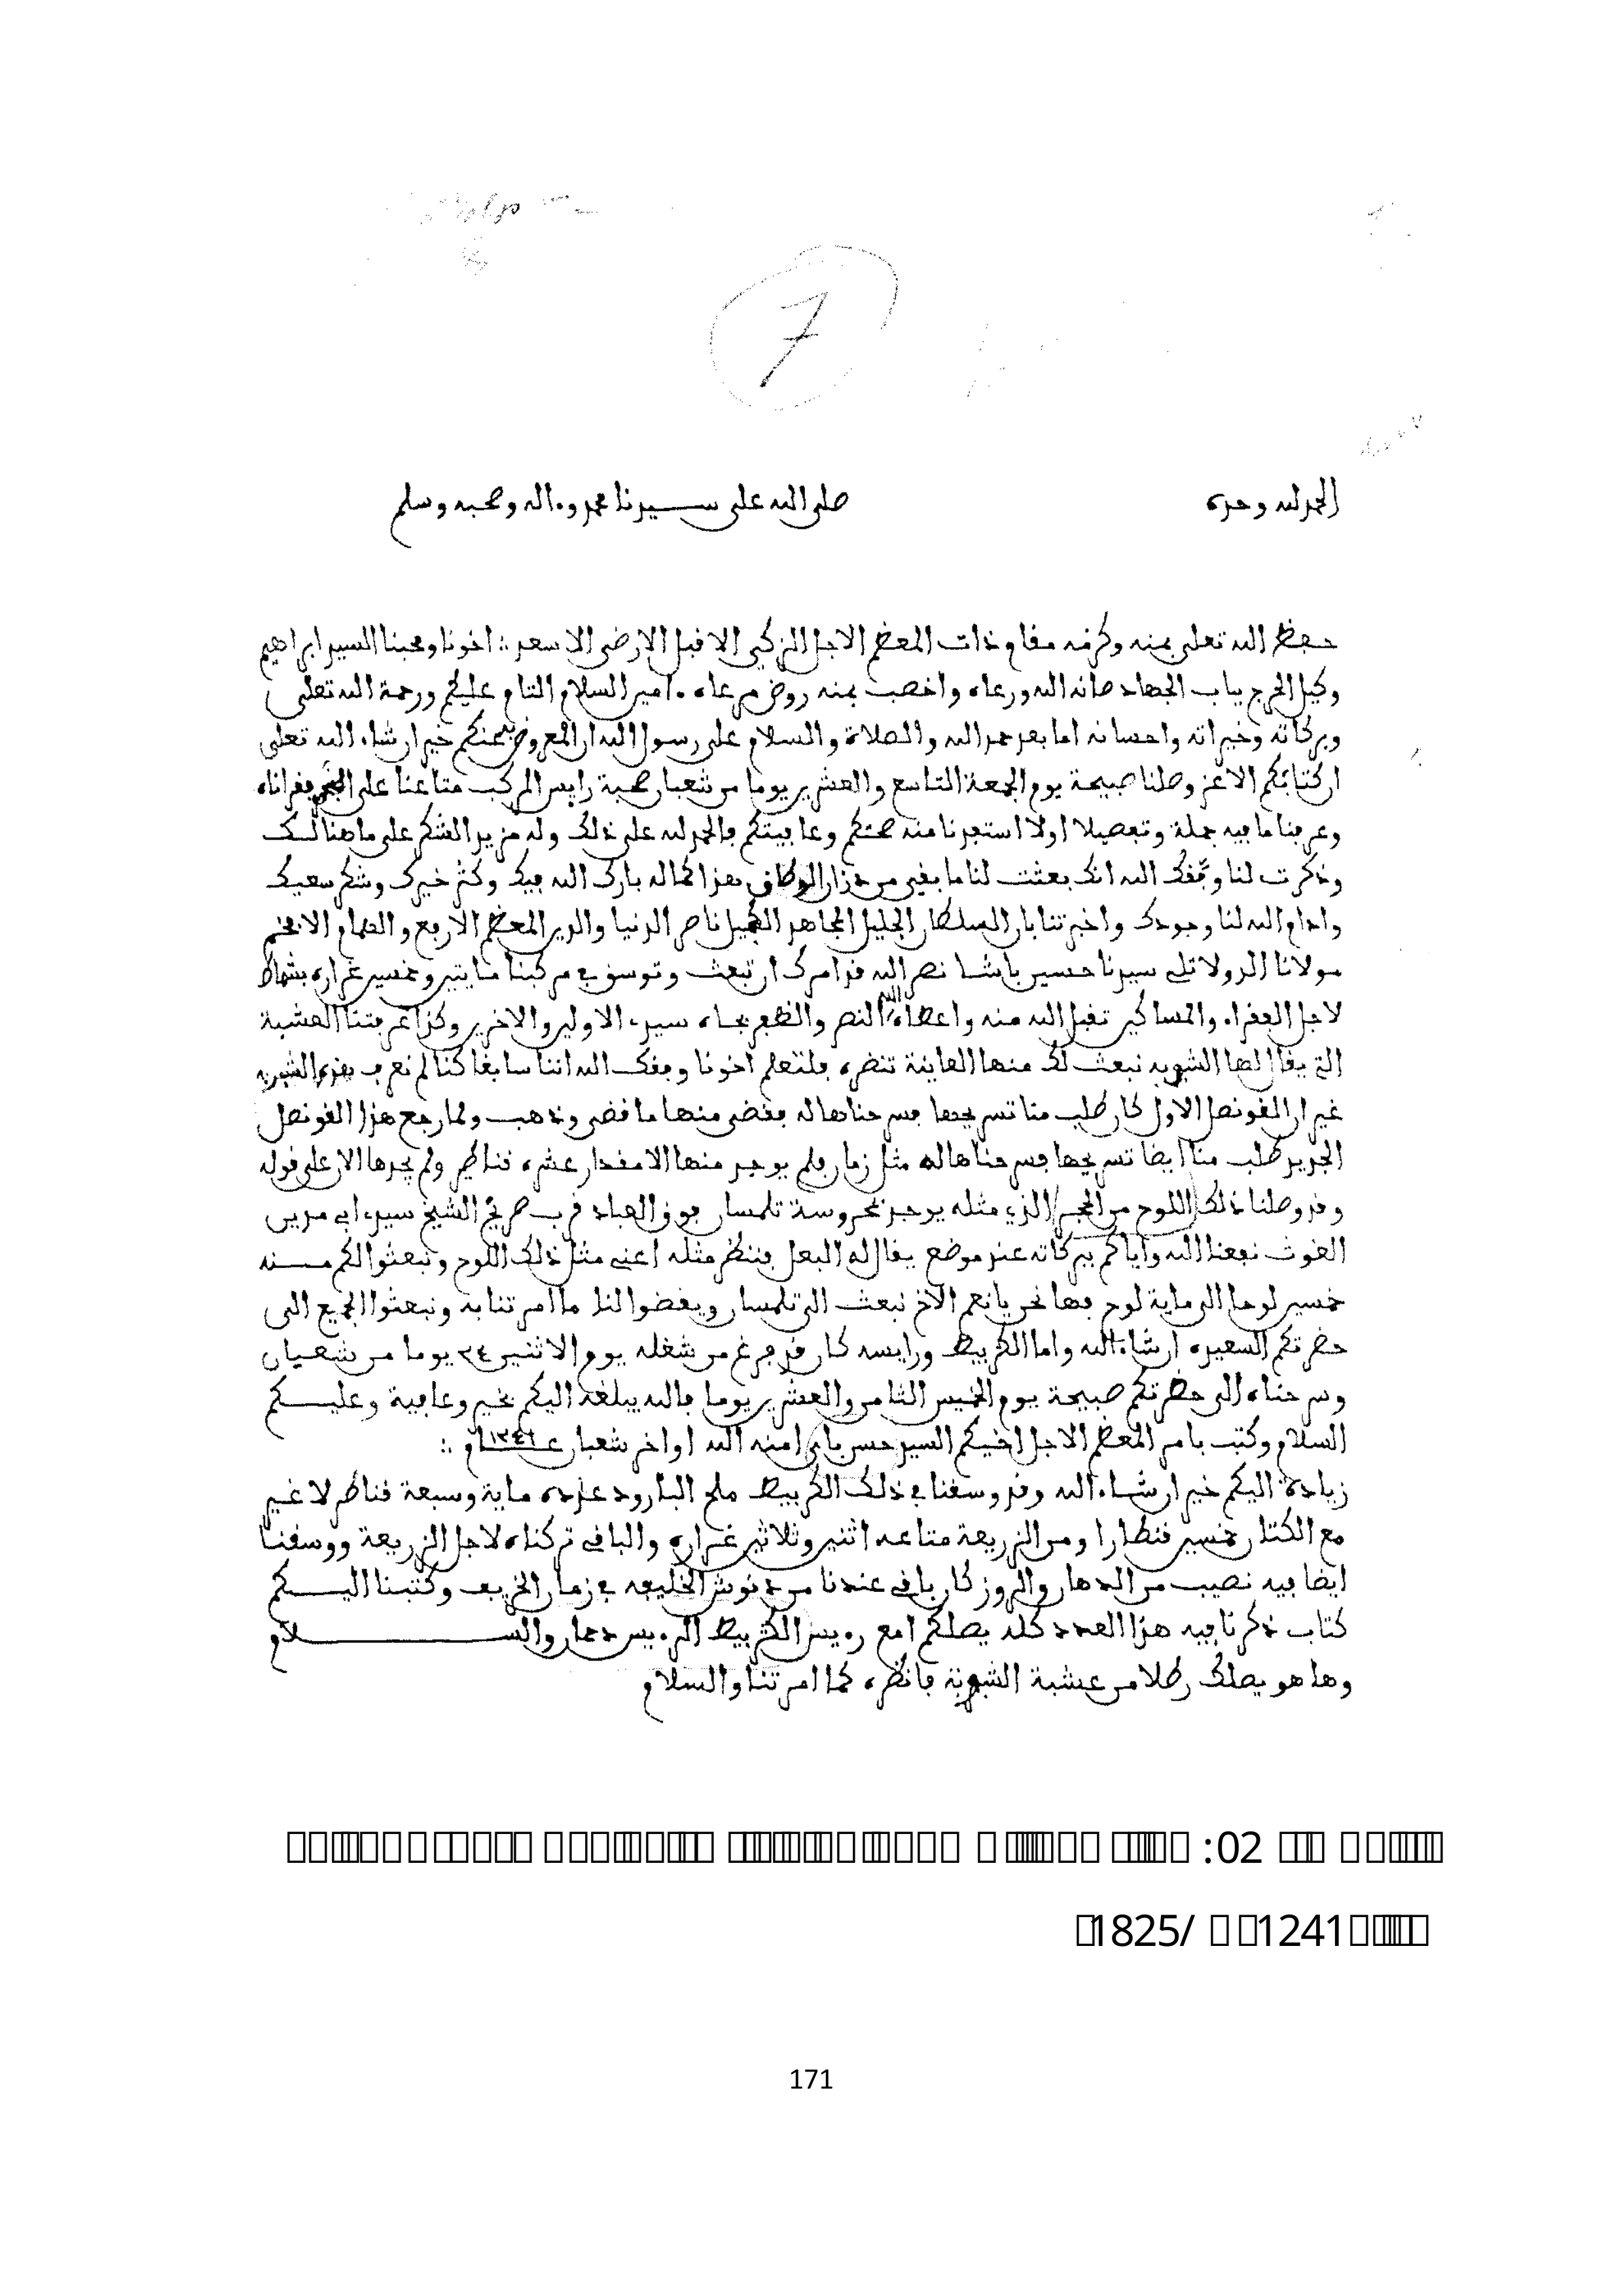 7
الحمد لله وحده
صلى الله على سيدنا محمد وءاله وصحبه وسلم
حفظ الله تعلى بمنه وكرمه مقام ذات المعظم الاجل الزكي الاقبل الارضى الاسعد : اخونا ومحبنا السيد ابراهيم
وكيل الحرج بباب الجهاد صانه الله ورعاه واخصب بمنه روض مرعاه ءامين السلام التام عليكم ورحمة الله تعلى
وبركاته وخيراته واحسانه اما بعد حمد الله والصلاة والسلام على رسول الله ان المعروض بمحبتكم خير ان شاء الله تعلى
ان كتابكم الاعز وصلنا صبيحة يوم الجمعة التاسع والعشرين يوما من شعبان صحبة رايس المركب متاعنا على فقراناه
وعرفنا ما فيه جملة وتفصيلا اولا استفدنا منه صحتكم وعافيتكم فالحمد لله على ذلك وله مزيد الشكر على ما هنالك
وذكرت لنا وفقك الله انك بعثت لنا ما بقي من هذا كماله بارك الله فيك وكثر خيرك وشكر سعيك
وادام الله لنا وجودك واخبرتنا بان السلطان الجليل المجاهد ناصر الدنيا والدين المعظم الارفع والهمام الافخم
مولانا الدولاتلي سيدنا حسين باشا نصره الله قد امرك ان تبعث وتوسق في مركبنا مايتين وخمسين غراره بشماط
لاجل الفقراء والمساكين تقبل الله منه واعطاه الله النصر والظفر بجاه سيد الاولين والاخرين وكذا عرفتنا العشبة
التي يقال لها الشوبه نبعث لك منها العاينة تنضره فلتعلم اخونا وفقك الله اننا سابقا كنا لم نعرف بهذه الشوبه
غير ان القونصل الاول كان طلب منا تسريحها فسرحناها له فقضى منها ما قضى وذهب ولما رجع هذا القونصل
الجديد طلب منا ايضا تسريحها فسرحناها له مثل زمان فلم يوجد منها الا مقدار عشره قناطر ولم يجدها الان على قوله
وقد وصلنا ذلك اللوح من الحجر الذي مثله يوجد بمحروسة تلمسان فوق العباد قرب ضريح الشيخ سيدي ابي مدين
الغوث نفعنا الله واياكم ببركاته عند موضع يقال له البعل فننظر مثله اعني مثل ذلك اللوح ونبعثوا لكم منه
خمسين لوحا الى ماية لوح فها نحن يا نعم الاخ نبعث الى تلمسان ويقضوا لنا ما امرتنا به ونبعثوا الجميع الى
حضرتكم السعيده ان شاء الله واما الكربيط ورايسه كان قد فرغ من شغله يوم الاثنين ٢٤ يوما من شعبان
وسرحناه الى حضرتكم صبيحة يوم الخميس الثامن والعشرين يوما فالله يبلغه اليكم بخير وعافية وعليكم
السلام وكتب بامر المعظم الاجل اخيكم السيد حسن باي امنه الله اواخر شعبان عام ١٢٤١ :
زيادة اليكم خير ان شاء الله وقد وسقنا في ذلك الكربيط ملح البارود عدده ماية وسبعة قناطر لا غير
مع الكتان خمسين قنطارا ومن الزريعة متاعه اثنين وثلاثين غراره والباقي تركناه لاجل الزريعة ووسقنا
ايضا فيه نصيب من الدهان والروز كان باقي عندنا من دنوش الخليفه في زمان الخريف وكتبنا اليكم
كتاب ذكرنا فيه هذا العدد كله يصلكم امع رءيس الكربيط الرءيس دحمان والسلام
وها هو يصلك رطلا من عشبة الشوبة فانظره كما امرتنا والسلام
02:
1241 /1825
171